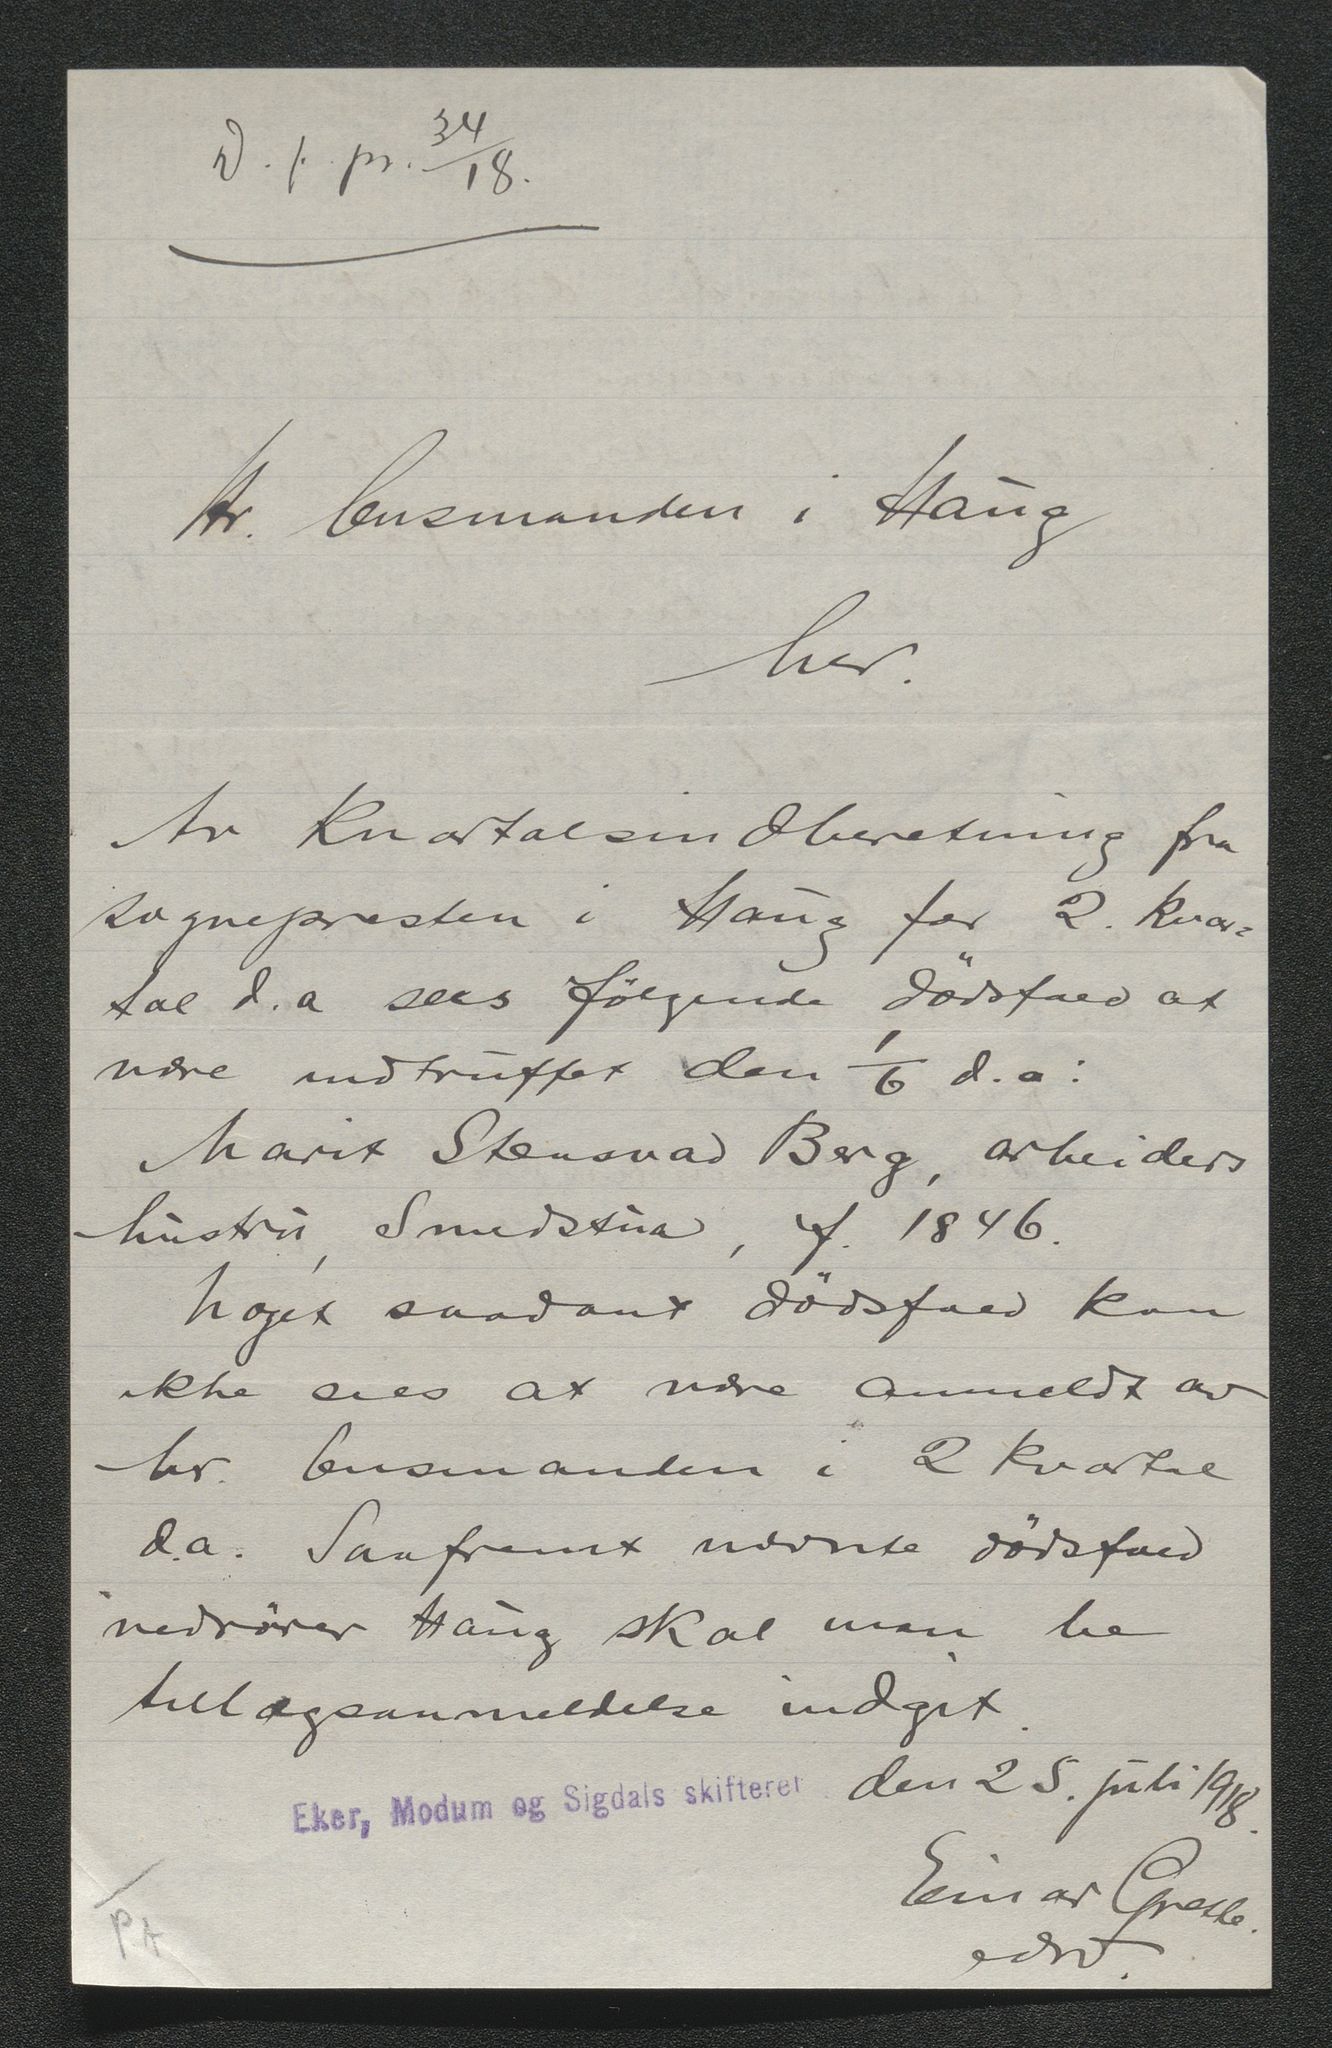 D. f. pr. 34/18.
Hr. lensmanden i Haug
her.
Av kvartalsindberetning fra
sognepresten i Haug for 2. kvar=
tal d.a sees følgende dödsfald at
være indtruffet den 1/6 d.a:
Marit Stensvad Berg, arbeiders
hustru, Smedstua, f. 1846.
Noget saadant dödsfald kan
ikke sees at være anmeldt av
hr. lensmanden i 2 kvartal
d.a. Saafremt nævnte dödsfald
vedrörer Haug skal man be
tillægsanmeldelse indgit.
Eker, Modum og Sigdals skifteret den 25. juli 1918.
Einar Grette.
edsv.
PA